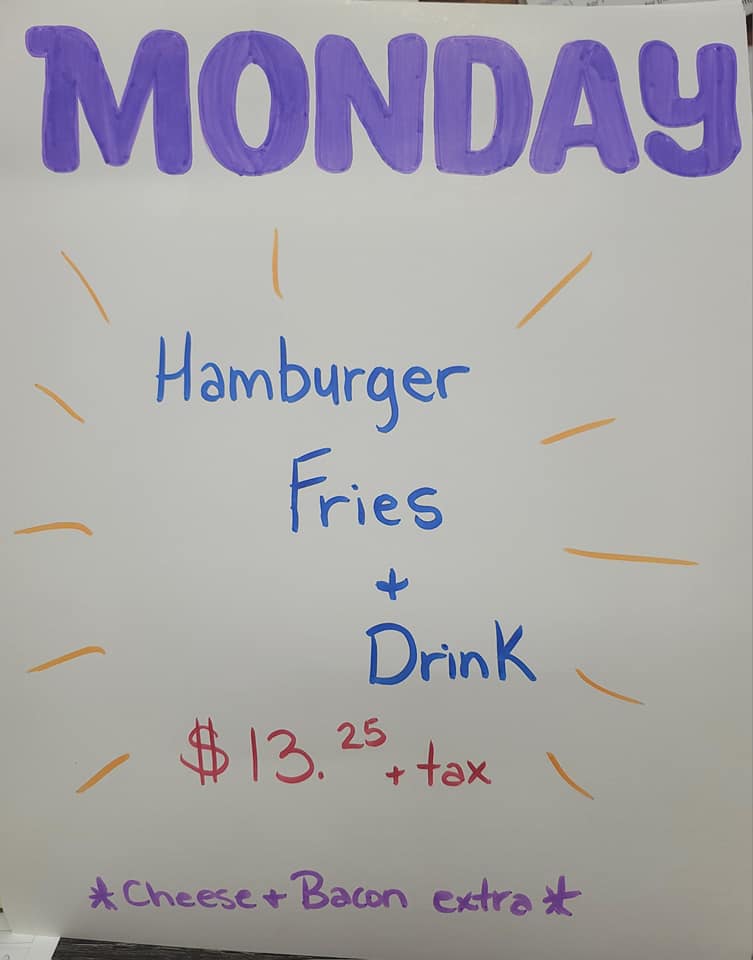 MONDAY
Hamburger
Fries
+
Drink
$13.25 + tax
*Cheese + Bacon extra*